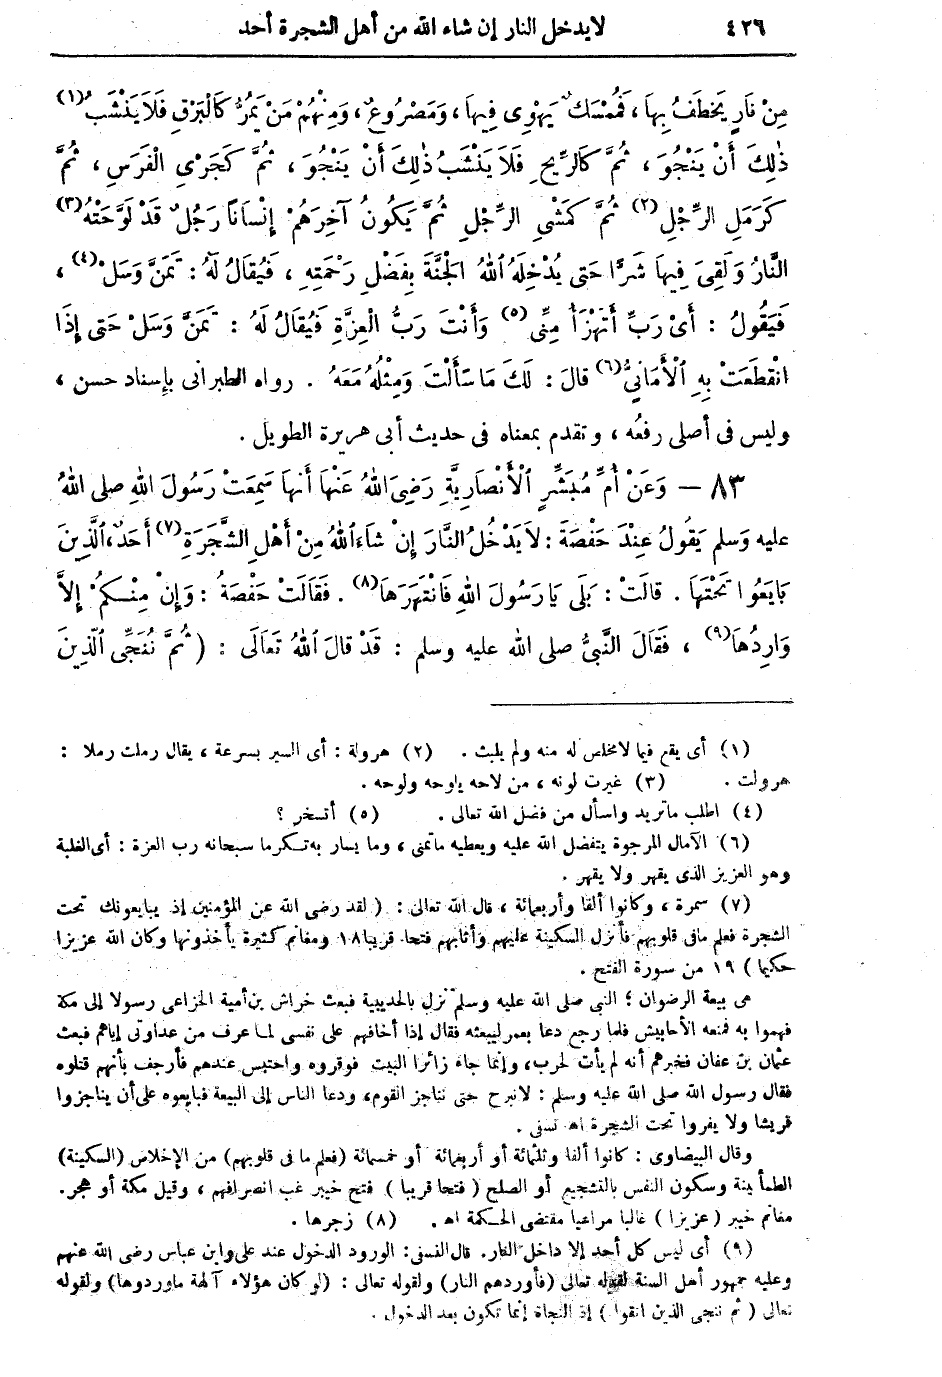 ٤٢٦ لا يدخل النار إن شاء الله من أهل الشجرة أحد
مِنْ نَارٍ يَخْطَفُ بِهاَ، فَمُمْسَكٌ يَهْوِى فِيهاَ، وَمَصْرُوعٌ، وَمِنْهُمْ مَنْ يَمُرُّ كَالْبَرْقِ فَلاَ يَنْشَبُ (١)
ذٰلِكَ أَنْ يَنْجُوَ، ثُمَّ كَالرِّيحِ فَلاَ يَنْشَبُ ذٰلِكَ أَنْ يَنْجُوَ، ثُمَّ كَجَرْىِ الْفَرَسِ، ثُمَّ
كَرَمَلِ الرَّجُلِ (٢) ثُمَّ كَمَشْىِ الرَّجُلِ ثُمَّ يَكُونُ آخِرَهُمْ إِنْسَاناً رَجُلٌ قَدْ لَوَّحَتْهُ (٣)
النَّارُ وَلَقِىَ فِيهاَ شَرًّا حَتى يُدْخِلَهُ اللهُ الْجَنَّةَ بِفَضْلِ رَحْمَتِهِ، فَيُقاَلُ لَهُ : تَمَنَّ وَسَلْ (٤)،
فَيَقُولُ : أَىْ رَبِّ أَتَهْزَأُ مِنِّى (٥) وَأَنْتَ رَبُّ الْعِزَّةِ فَيُقاَلُ لَهُ : تَمَنَّ وَسَلْ حَتى إِذَا
انْقَطَعَتْ بِهِ الْأَمَانِىُّ (٦) قالَ : لَكَ مَا سَأَلْتَ وَمِثْلُهُ مَعَهُ . رواه الطبرانى بإسناد حسن،
وليس فى أصلى رفعُه، وتقدم بمعناه فى حديث أبى هريرة الطويل .
٨٣ — وَعَنْ أُمِّ مُبَشِّرٍ الْأَنْصَارِيَّةِ رَضِىَ اللهُ عَنْهَا أَنهاَ سَمِعَتْ رَسُولَ اللهِ صلى اللهُ
عليه وَسلم يَقُولُ عِنْدَ حَفْصَةَ : لاَ يَدْخُلُ النَّارَ إِنْ شَاءَ اللهُ مِنْ أَهْلِ الشَّجَرَةِ (٧) أَحَدٌ، الَّذِينَ
بَايَعُوا تَحْتَهَا . قالَتْ : بَلَى يَا رَسُولَ اللهِ فَانْتَهَرَهَا (٨) . فَقَالَتْ حَفْصَةُ : وَإِنْ مِنْكمُ إِلاَّ
وَارِدُهَا (٩)، فَقَالَ النَّبىُّ صلى الله عليه وسلم : قَدْ قالَ اللهُ تَعَالَى : ( ثُمَّ نُنَجِّى الَّذِينَ
(١) أى يقع فيما لا مخلص له منه ولم يلبث . (٢) هرولة : أى السير بسرعة، يقال رملت رملا :
هرولت . (٣) غيرت لونه، من لاحه يلوحه ولوحه .
(٤) اطلب ما تريد واسأل من فضل الله تعالى . (٥) أتسخر ؟
(٦) الآمال المرجوة يتفضل الله عليه ويعطيه ما تمنى، وما يسار به تكرما سبحانه رب العزة : أى الغلبة
وهو العزيز الذى يقهر ولا يقهر .
(٧) سمرة، وكانوا ألفا وأربعمائة، قال الله تعالى : ( لقد رضى الله عن المؤمنين إذ يبايعونك تحت
الشجرة فعلم ما فى قلوبهم فأنزل السكينة عليهم وأثابهم فتحا قريبا ١٨ ومغانم كثيرة يأخذونها وكان الله عزيزا
حكيما ) ١٩ من سورة الفتح .
هى بيعة الرضوان ؛ النبى صلى الله عليه وسلم نزل بالحديبية فبعث خراش بن أمية الخزاعى رسولا إلى مكة
فهموا به فمنعه الأحابيش فلما رجع دعا بعمر ليبعثه فقال إذا أخافهم على نفسى لما عرف من عداوتى إياهم فبعث
عثمان بن عفان فخبرهم أنه لم يأت لحرب، وإنما جاء زائرا البيت فوقروه واحتبس عندهم فأرجف بأنهم قتلوه
فقال رسول الله صلى الله عليه وسلم : لا نبرح حتى نناجز القوم، ودعا الناس إلى البيعة فبايعوه على أن يناجزوا
قريشا ولا يفروا تحت الشجرة اهـ نسفى .
وقال البيضاوى : كانوا ألفا وثلثمائة أو أربعمائة أو خمسمائة (فعلم ما فى قلوبهم) من الإخلاص (السكينة)
الطمأنينة وسكون النفس بالتشجيع أو الصلح ( فتحا قريبا ) فتح خيبر غب انصرافهم، وقيل مكة أو هجر.
مغانم خيبر ( عزيزا ) غالبا مراعيا مقتضى الحكمة اهـ . (٨) زجرها .
(٩) أى ليس كل أحد إلا داخل النار. قال النسفى : الورود الدخول عند على وابن عباس رضى الله عنهم
وعليه جمهور أهل السنة لقوله تعالى (فأوردهم النار) ولقوله تعالى : (لو كان هؤلاء آلهة ما وردوها) ولقوله
تعالى ( ثم ننجى الذين اتقوا ) إذ النجاة إنما تكون بعد الدخول .